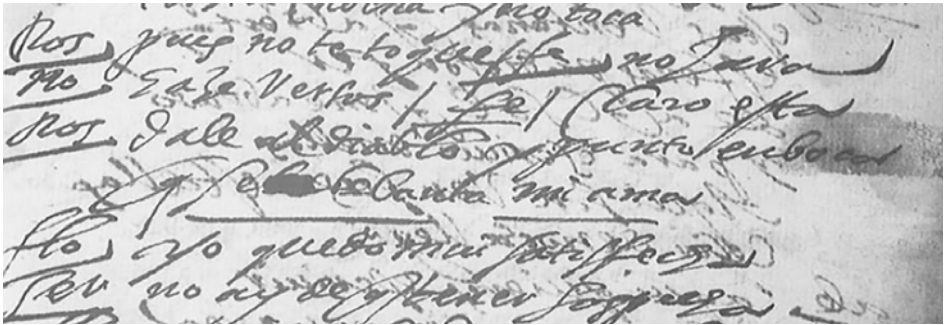 y no toca
Ros pues no te toque esse no Jura
Mo Ease Versus / fe / Claro esta
Ros Dale al diablo y punto en boca
q se lebanta mi ama
flo yo quedo mui satisfecha
Ger no ay de q tener sospecha